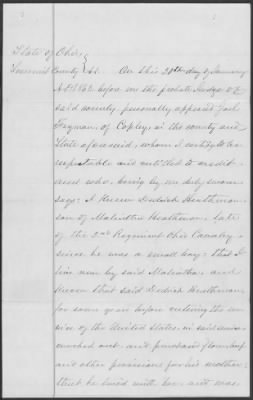 State of Ohio,
Summit County SS. On this 28th day of January
A.D. 1862 before me the probate Judge of
said county, personally appeared Joel
of Copley, in the county and
State aforesaid, whom I certify to be
respectable and entitled to credit
and who, being by me duly sworn
says: I knew Dedrich Heathman
son of Malintha Heathman, late
of the 2nd Regiment Ohio Cavalry
since he was a small boy: that I
him now by said Malintha and
know that said Dedrich Heathman
for some years before entering the ser-
vice of the United States in said
worked out and purchased
and other provisions for his mother:
that he lived with her and was